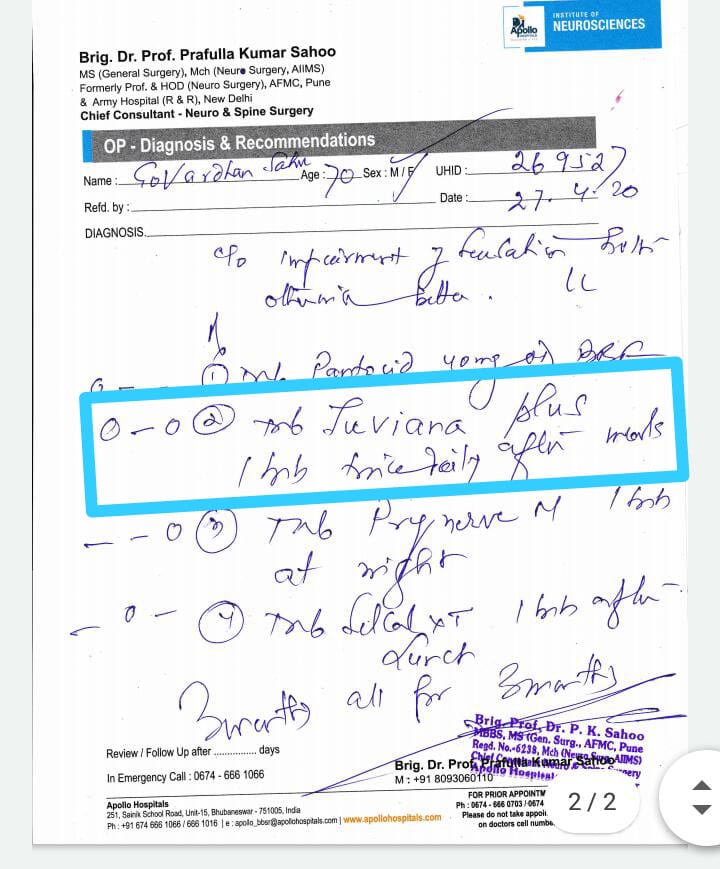 Apollo
HOSPITALS
INSTITUTE OF
NEUROSCIENCES
Brig. Dr. Prof. Prafulla Kumar Sahoo
MS (General Surgery), Mch (Neuro Surgery, AIIMS)
Formerly Prof. & HOD (Neuro Surgery), AFMC, Pune
& Army Hospital (R & R), New Delhi
Chief Consultant - Neuro & Spine Surgery
OP - Diagnosis & Recommendations
Name : Govardhan Sahu Age : 70 Sex : M / F UHID : 269527
Refd. by : Date : 27.4.20
DIAGNOSIS.
c/o impairment of
better.
① Tab Pantocid 40mg
0 - 0 ② Tab plus
1 tab twice daily after meals
- - 0 ③ Tab M 1 tab
at night
- 0 - ④ Tab XT 1 tab after
Lunch
3 months all for 3 months
Brig. Prof. Dr. P. K. Sahoo
MBBS, MS (Gen. Surg., AFMC, Pune
Regd. No.-6238, Mch (Neuro Surg., AIIMS)
Review / Follow Up after ............... days
Brig. Dr. Prof. Prafulla Kumar Sahoo
Apollo Hospital
In Emergency Call : 0674 - 666 1066
M : +91 8093060110
Apollo Hospitals
251, Sainik School Road, Unit-15, Bhubaneswar - 751005, India
Ph : +91 674 666 1066 / 666 1016 | e : apollo_bbsr@apollohospitals.com | www.apollohospitals.com
FOR PRIOR APPOINTM
Ph : 0674 - 666 0703 / 0674
Please do not take appoi
on doctors cell numbe
2 / 2